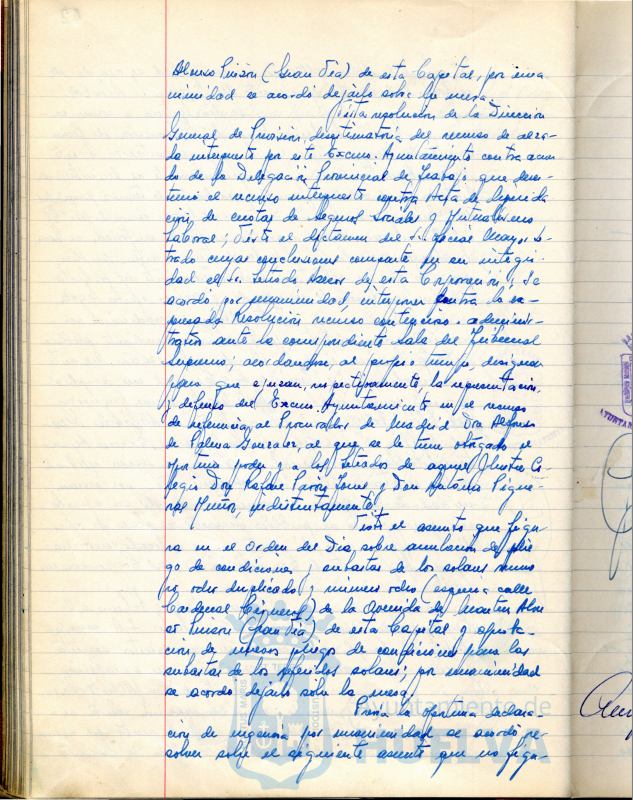 Alonso Pinzón (Gran Vía) de esta Capital, por una-
nimidad se acordó dejarlo sobre la mesa.
Vista resolución de la Dirección
General de Previsión, desestimatoria del recurso de alza-
da interpuesto por este Excmo. Ayuntamiento contra acuer-
do de la Delegación Provincial de Trabajo que deses-
timó el recurso interpuesto contra Acta de liquida-
ción de cuotas de Seguros Sociales y Mutualismo
Laboral; Visto el dictamen del Sr. Oficial Mayor Le-
trado cuyas conclusiones comparte en su integri-
dad el Sr. Letrado Asesor de esta Corporación; Se
acordó por unanimidad, interponer contra la ex-
presada Resolución recurso contencioso-adminis-
trativo ante la correspondiente Sala del Tribunal
Supremo; acordándose, al propio tiempo, designar
para que ejerzan, respectivamente, la representación
y defensa del Excmo. Ayuntamiento en el recurso
de referencia, al Procurador de Madrid Don
de Palma González, al que se le tiene otorgado el
oportuno poder y a los Letrados de aquel Ilustre Co-
legio Don Rafael y Don Antonio
Muñoz, indistintamente.
Visto el asunto que figu-
ra en el Orden del Día, sobre anulación de plie-
go de condiciones y subastas de los solares núme-
ro ocho duplicado y número ocho (esquina calle
Cardenal Cisneros) de la Avenida de Martín Alon-
so Pinzón (Gran Vía) de esta Capital y aproba-
ción de nuevos pliegos de condiciones para las
subastas de los referidos solares; por unanimidad
se acordó dejarlo sobre la mesa.
Previa la oportuna declara-
ción de urgencia por unanimidad se acordó re-
solver sobre el siguiente asunto que no figu-
Ayuntamiento de
HUELVA